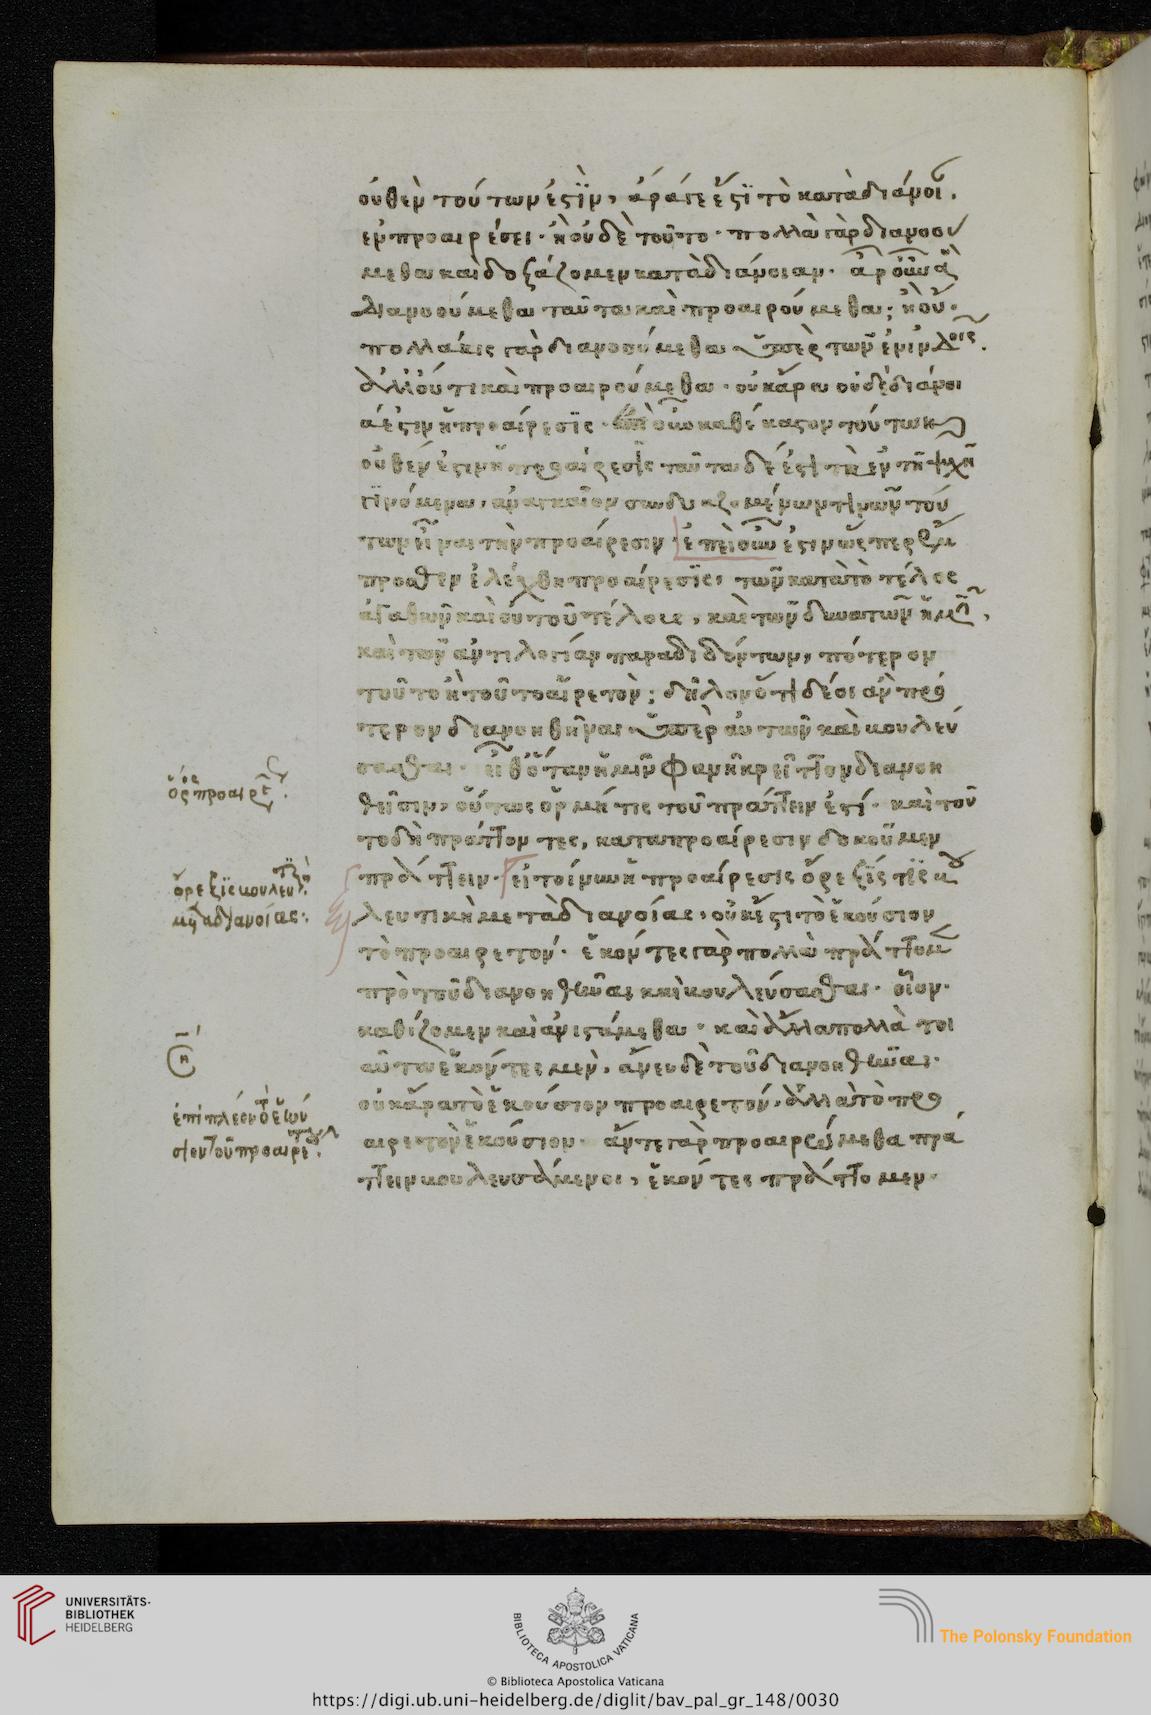 οὐθὲν τούτων ἐστὶν, ἆρά γε ἐστὶ τὸ κατὰ διάνοι
εν προαιρέσει· ἢ οὐδὲ τοῦτο· πολλὰ γὰρ διανοού
μεθα καὶ δοξάζομεν κατὰ διάνοιαν· ἆρ οὖν ἃ
διανοούμεθα ταῦτα καὶ προαιρούμεθα; ἢ οὔ·
πολλάκις γὰρ διανοούμεθα ὑπὲρ τῶν ἐν ἰνδοῖς.
ἀλλ οὔτι καὶ προαιρούμεθα· οὐκ ἄρα οὐδὲ διάνοι
ά ἐστιν ἡ προαίρεσις· ἐπεὶ οὖν καθ έκαστον τούτων
οὐθέν ἐστιν ἡ προαίρεσις ταῦτα δέ ἐστι τὰ ἐν τῆ ψυχῆ
γινόμενα, ἀναγκαῖον συνδυαζομένων τινῶν τού
των εἶναι τὴν προαίρεσιν· ἐπεὶ οὖν ἐστιν ὥσπερ
προσθεν ἐλέχθη προαίρεσις, τῶν κατὰ τὸ τέλος
ἀγαθῶν καὶ οὐ τοῦ τέλους, καὶ τῶν δυνατῶν ἡμῖν,
καὶ τῶν ἀντιλογίαν παραδιδόντων, πότερον
τοῦτο ἢ τοῦτο αἱρετὸν; δῆλον ὅτι δέοι ἂν πρό
τερον διανοηθῆναι ὑπὲρ αὐτῶν καὶ βουλεύ
σασθαι· εἶθ ὅταν ἡμῖν φανῆ κρεῖττον διανοη
θεῖσιν, οὕτως ὁρμή τις τοῦ πράττειν ἐστί· καὶ τοῦ
το δὴ πράττοντες, κατα προαίρεσιν δοκοῦμεν
πράττειν· εἰ τοίνυν ἡ προαίρεσις ὄρεξίς τις βου
λευτικὴ μετὰ διανοίας, οὐκ ἔστι τὸ ἑκούσιον
τὸ προαιρετόν· ἑκόντες γὰρ πολλὰ πράττομεν
πρὸ τοῦ διανοηθῆναι καὶ βουλεύσασθαι· οἷον·
καθίζομεν καὶ ἀνιστάμεθα· καὶ ἄλλα πολλὰ τοι
αῦτα ἑκόντες μὲν, ἄνευ δὲ τοῦ διανοηθῆναι·
οὐκ ἄρα τὸ ἑκούσιον προαιρετόν, ἀλλὰ τὸ προ
αιρετὸν ἑκούσιον· ἄν τε γὰρ προαιρώμεθα πρά
ττειν βουλευσάμενοι, ἑκόντες πράττομεν·
ὅρος
ὁς προαιρέ.
ὄρεξις βουλευτι
μετὰ διανοίας:
ση
ἐπὶ πλέον τὸ ἑκού
σιον τοῦ προαιρετοῦ.
UNIVERSITÄTS-
BIBLIOTHEK
HEIDELBERG
BIBLIOTECA APOSTOLICA VATICANA
The Polonsky Foundation
© Biblioteca Apostolica Vaticana
https://digi.ub.uni-heidelberg.de/diglit/bav_pal_gr_148/0030